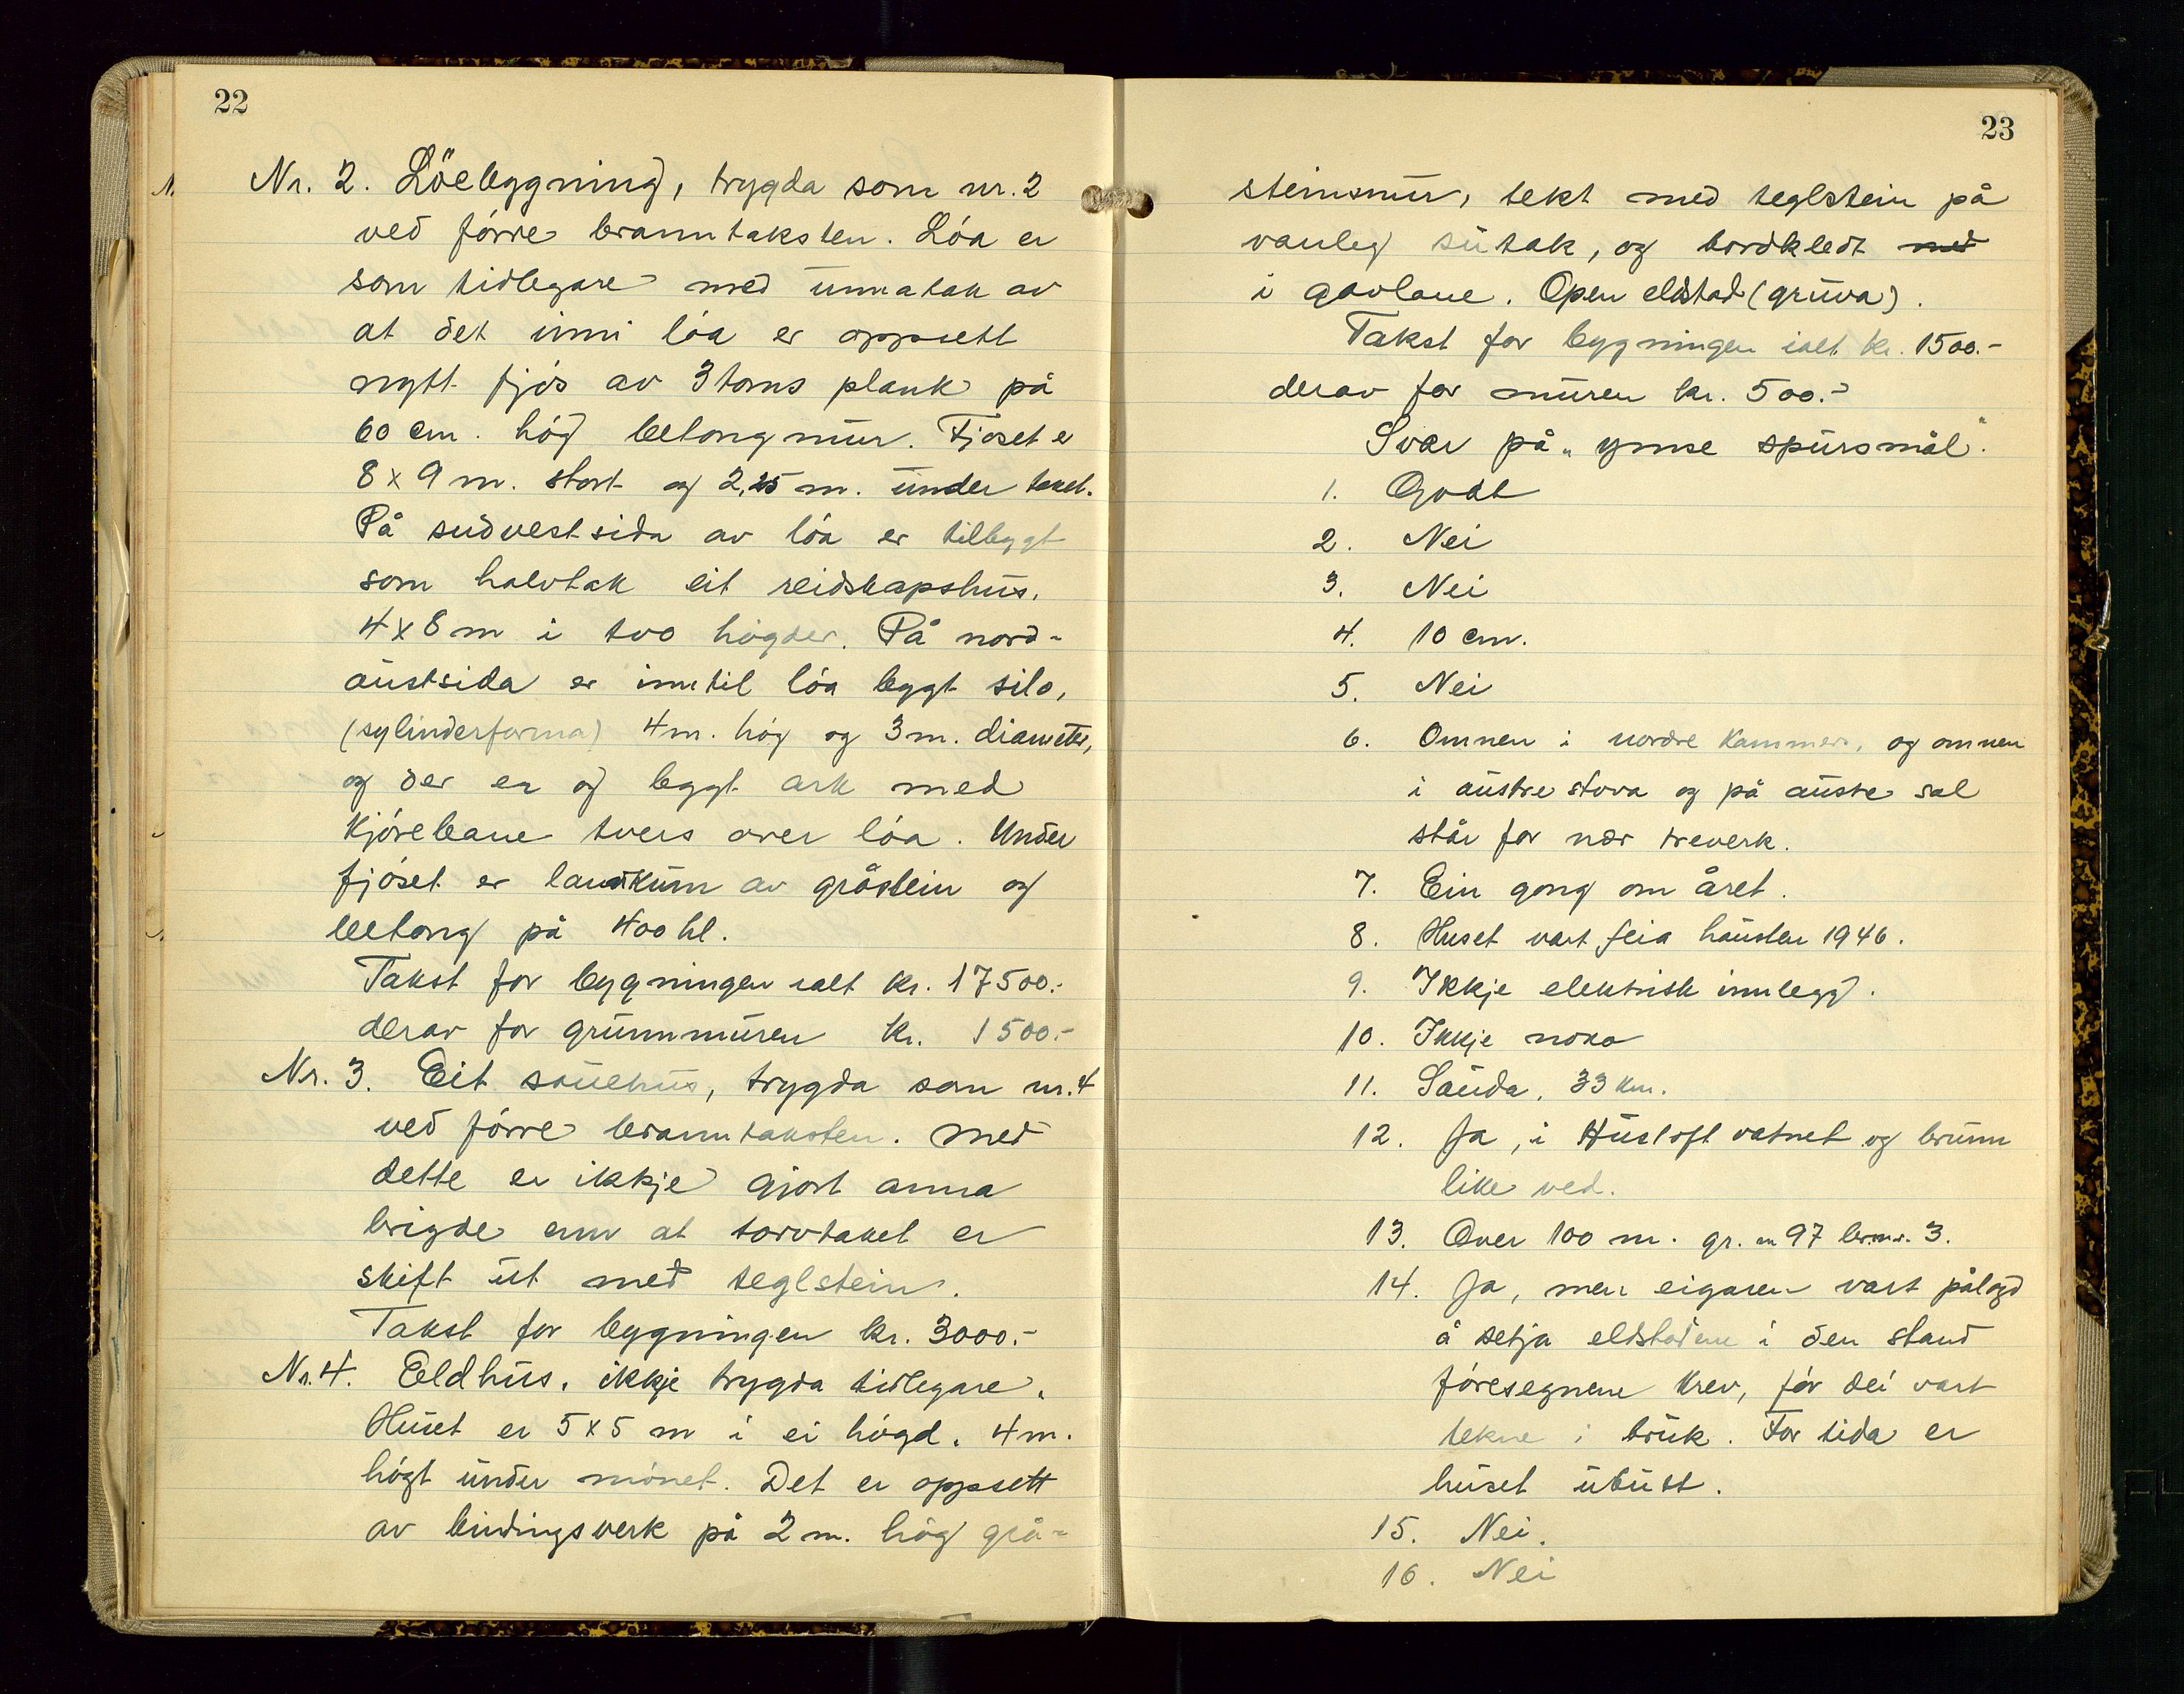 22
Nr. 2. Löebygning, trygda som nr. 2
ved förre branntaksten. Löa er
som tidlegare med unnatak av
at det inni löa er oppsett
nytt fjös av 3 toms plank på
60 cm. hög betongmur. Fjöset er
8 x 9 m. stort og 2,25 m. under taket.
På sudvestsida av löa er tilbygt
som halvtak eit reidskapshus.
4 x 8 m i tvo högder. På nord-
austsida er inntil löa bygt silo,
(sylinderforma) 4 m. hög og 3 m. diameter,
og der er og bygt ark med
kjörebane tvers over löa. Under
fjöset er landkum av gråstein og
betong på 400 hl.
Takst for bygningen ialt kr. 17500.-
derav for grunnmuren kr. 1500.-
Nr. 3. Eit sauehus, trygda som nr. 4
ved förre branntaksten. Med
dette er ikkje gjort anna
brigde enn at torvtaket er
skift ut med teglstein.
Takst for bygningen kr. 3000.-
Nr. 4. Eldhus, ikkje trygda tidlegare.
Huset er 5 x 5 m i ei högd. 4 m.
högt under mönet. Det er oppsett
av bindingsverk på 2 m. hög grå-
23
steinsmur, tekt med teglstein på
vanleg sutak, og bordkledt med
i gavlane. Open eldstad (gruva).
Takst for bygningen ialt kr. 1500.-
derav for muren kr. 500.-
Svar på „ymse spursmål".
1. Godt
2. Nei
3. Nei
4. 10 cm.
5. Nei
6. Omnen i nordre kammers, og omnen
i austre stova og på austre sal
står for nær treverk.
7. Ein gong om året.
8. Huset vart feia hausten 1946.
9. Ikkje elektrisk innlegg.
10. Ikkje noko
11. Sauda, 33 km.
12. Ja, i Husloft vatnet og brunn
like ved.
13. Over 100 m. gr. nr 97 br.nr. 3.
14. Ja, men eigaren vart pålagd
å setja eldstadene i den stand
föresegnene krev, för dei vart
tekne i bruk. For tida er
huset ubutt.
15. Nei.
16. Nei